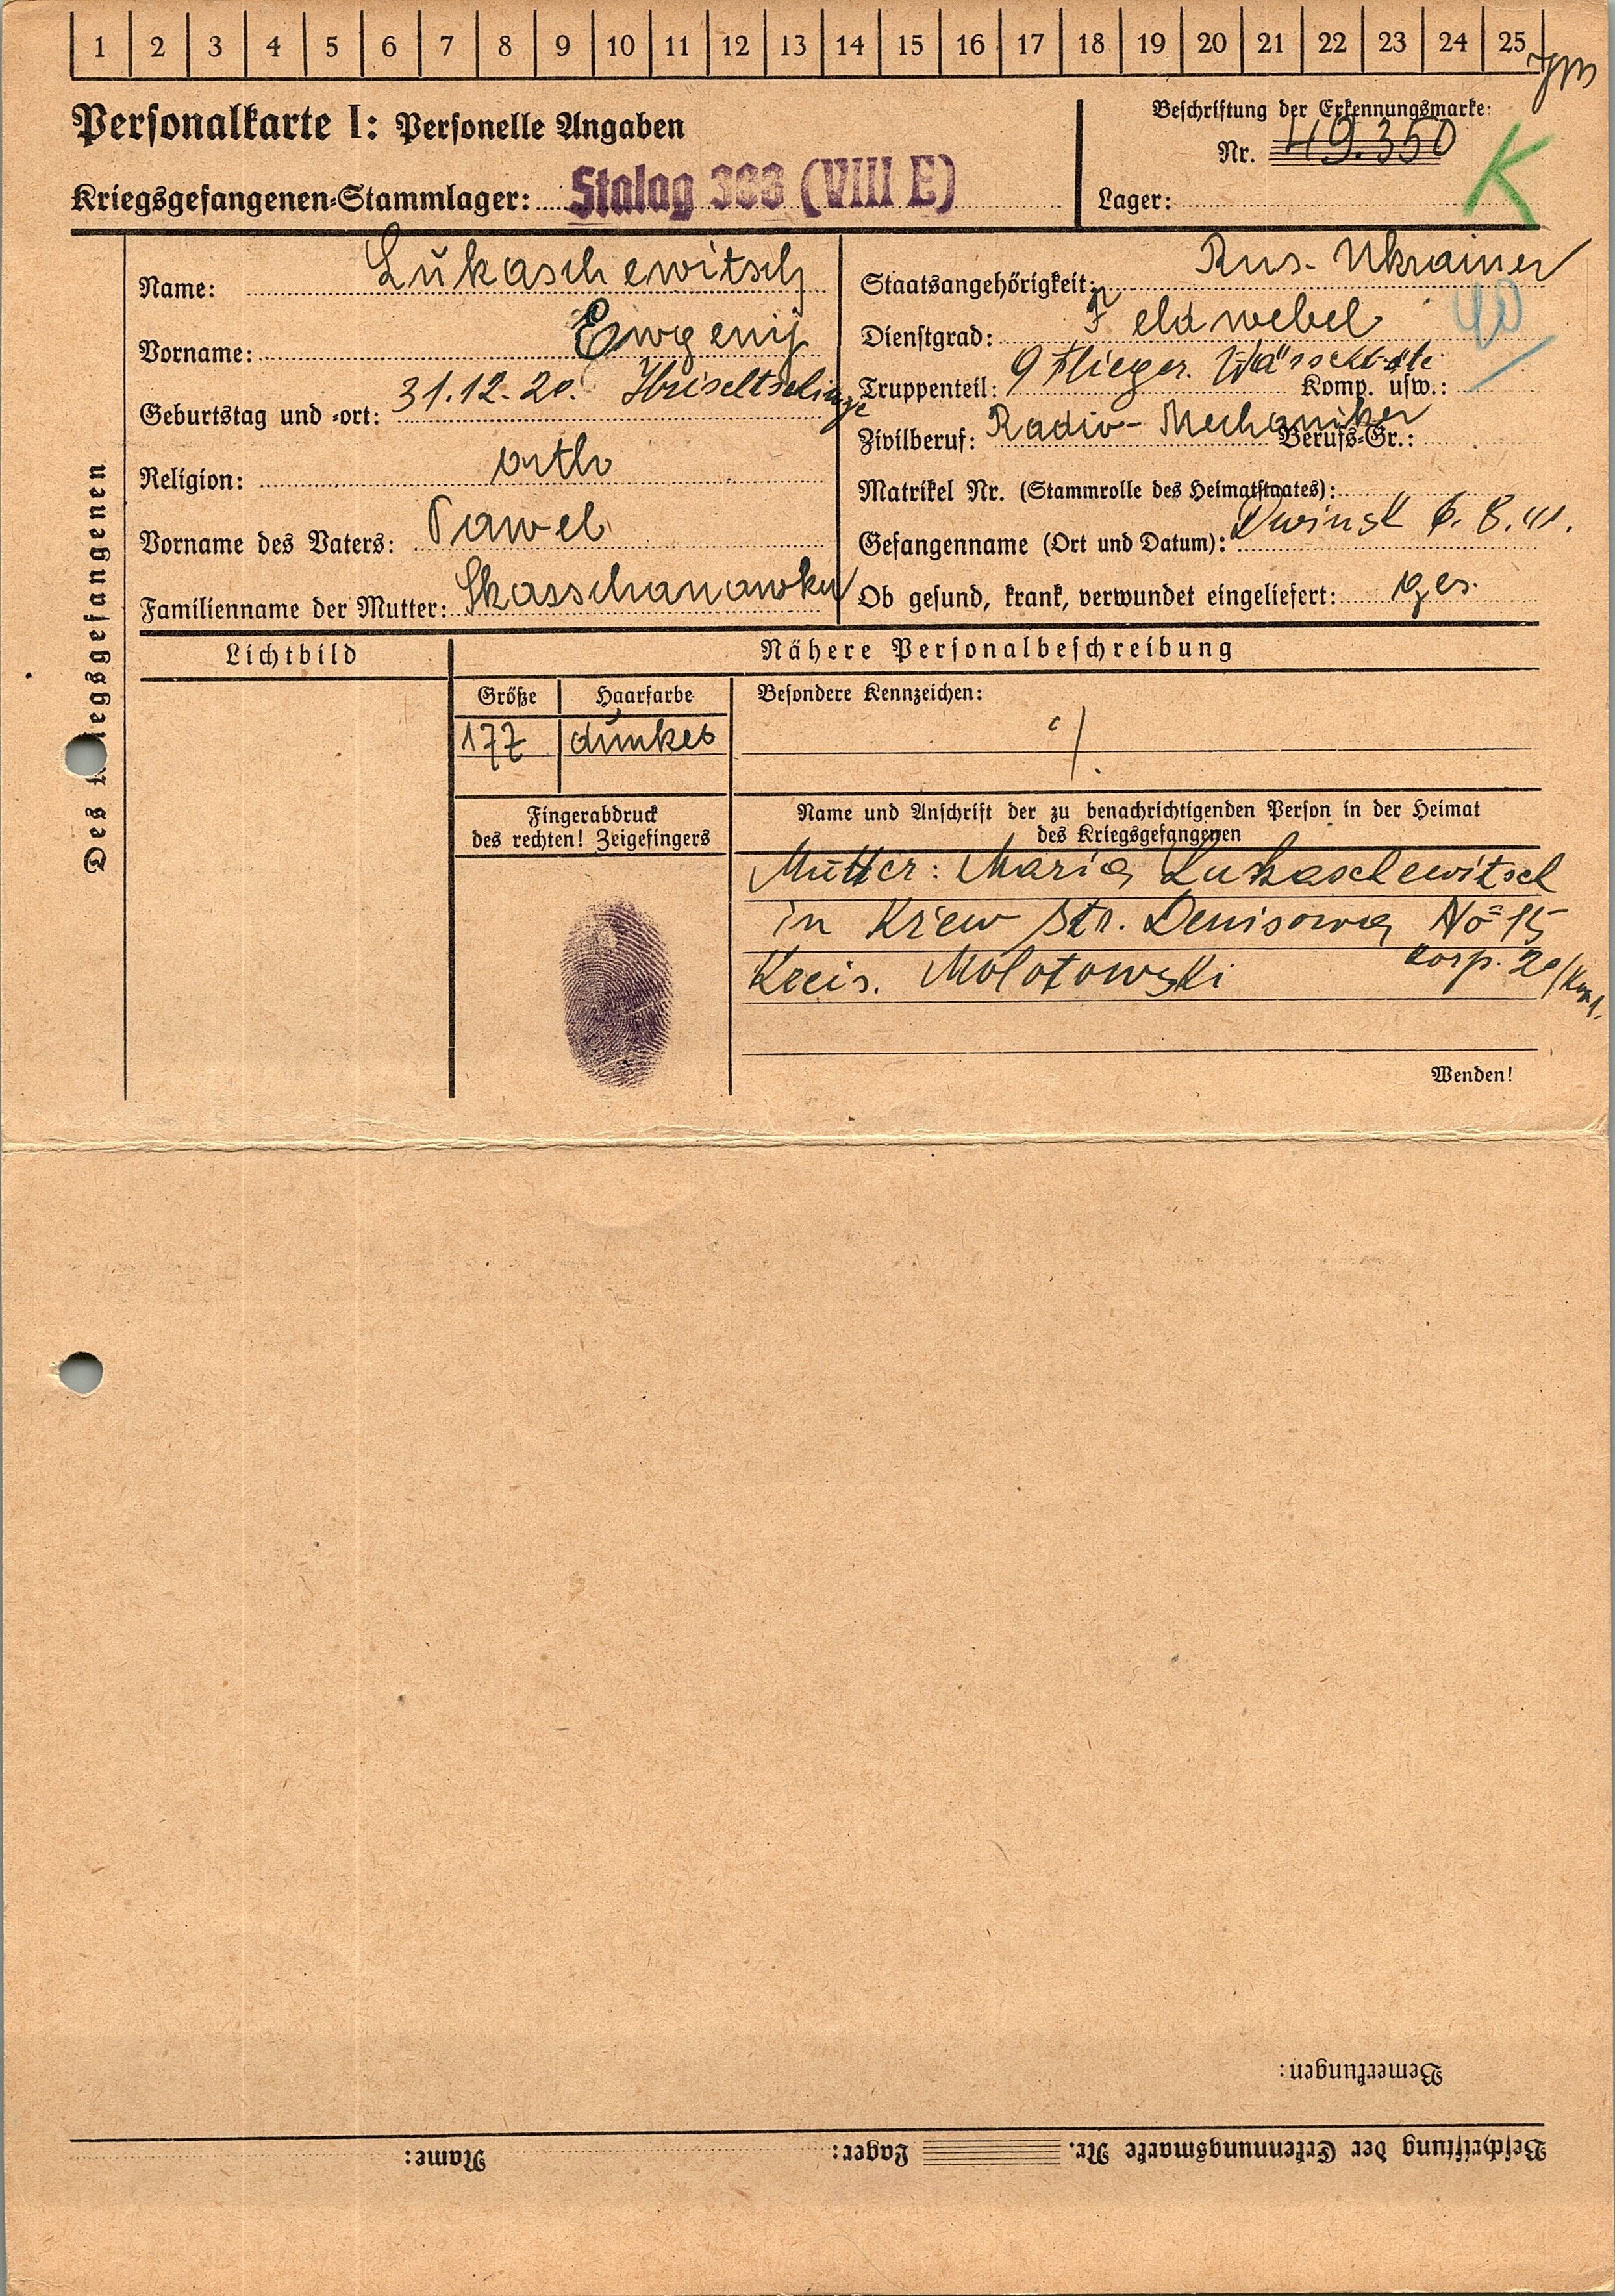 1 2 3 4 5 6 7 8 9 10 11 12 13 14 15 16 17 18 19 20 21 22 23 24 25
Personalkarte I: Personelle Angaben
Kriegsgefangenen-Stammlager: Stalag (VIII E)
Beschriftung der Erkennungsmarke:
Nr. 49.350
K
Lager:
Des Kriegsgefangenen
Name: Lukaschewitsch
Vorname: Ewgenij
Geburtstag und -ort: 31.12.20.
Religion: orth
Vorname des Vaters: Pawel
Familienname der Mutter:
Staatsangehörigkeit: Rus. Ukrainer
Dienstgrad: Feldwebel
Truppenteil: 9 Flieger. Komp. usw.:
Zivilberuf: Radio-Mechaniker Berufs-Gr.:
Matrikel Nr. (Stammrolle des Heimatstaates):
Gefangenname (Ort und Datum): Dwinsk 6.8.41.
Ob gesund, krank, verwundet eingeliefert: ges.
Lichtbild
Nähere Personalbeschreibung
Größe Haarfarbe Besondere Kennzeichen:
177 dunkel
Fingerabdruck
des rechten! Zeigefingers
Name und Anschrift der zu benachrichtigenden Person in der Heimat
des Kriegsgefangenen
Mutter: Maria Lukaschewitsch
in Kiew Str. Denisowa No 15
Kreis. Molotowski Korp.
Wenden!
Bemerkungen:
Beschriftung der Erkennungsmarke Nr. Lager: Name: